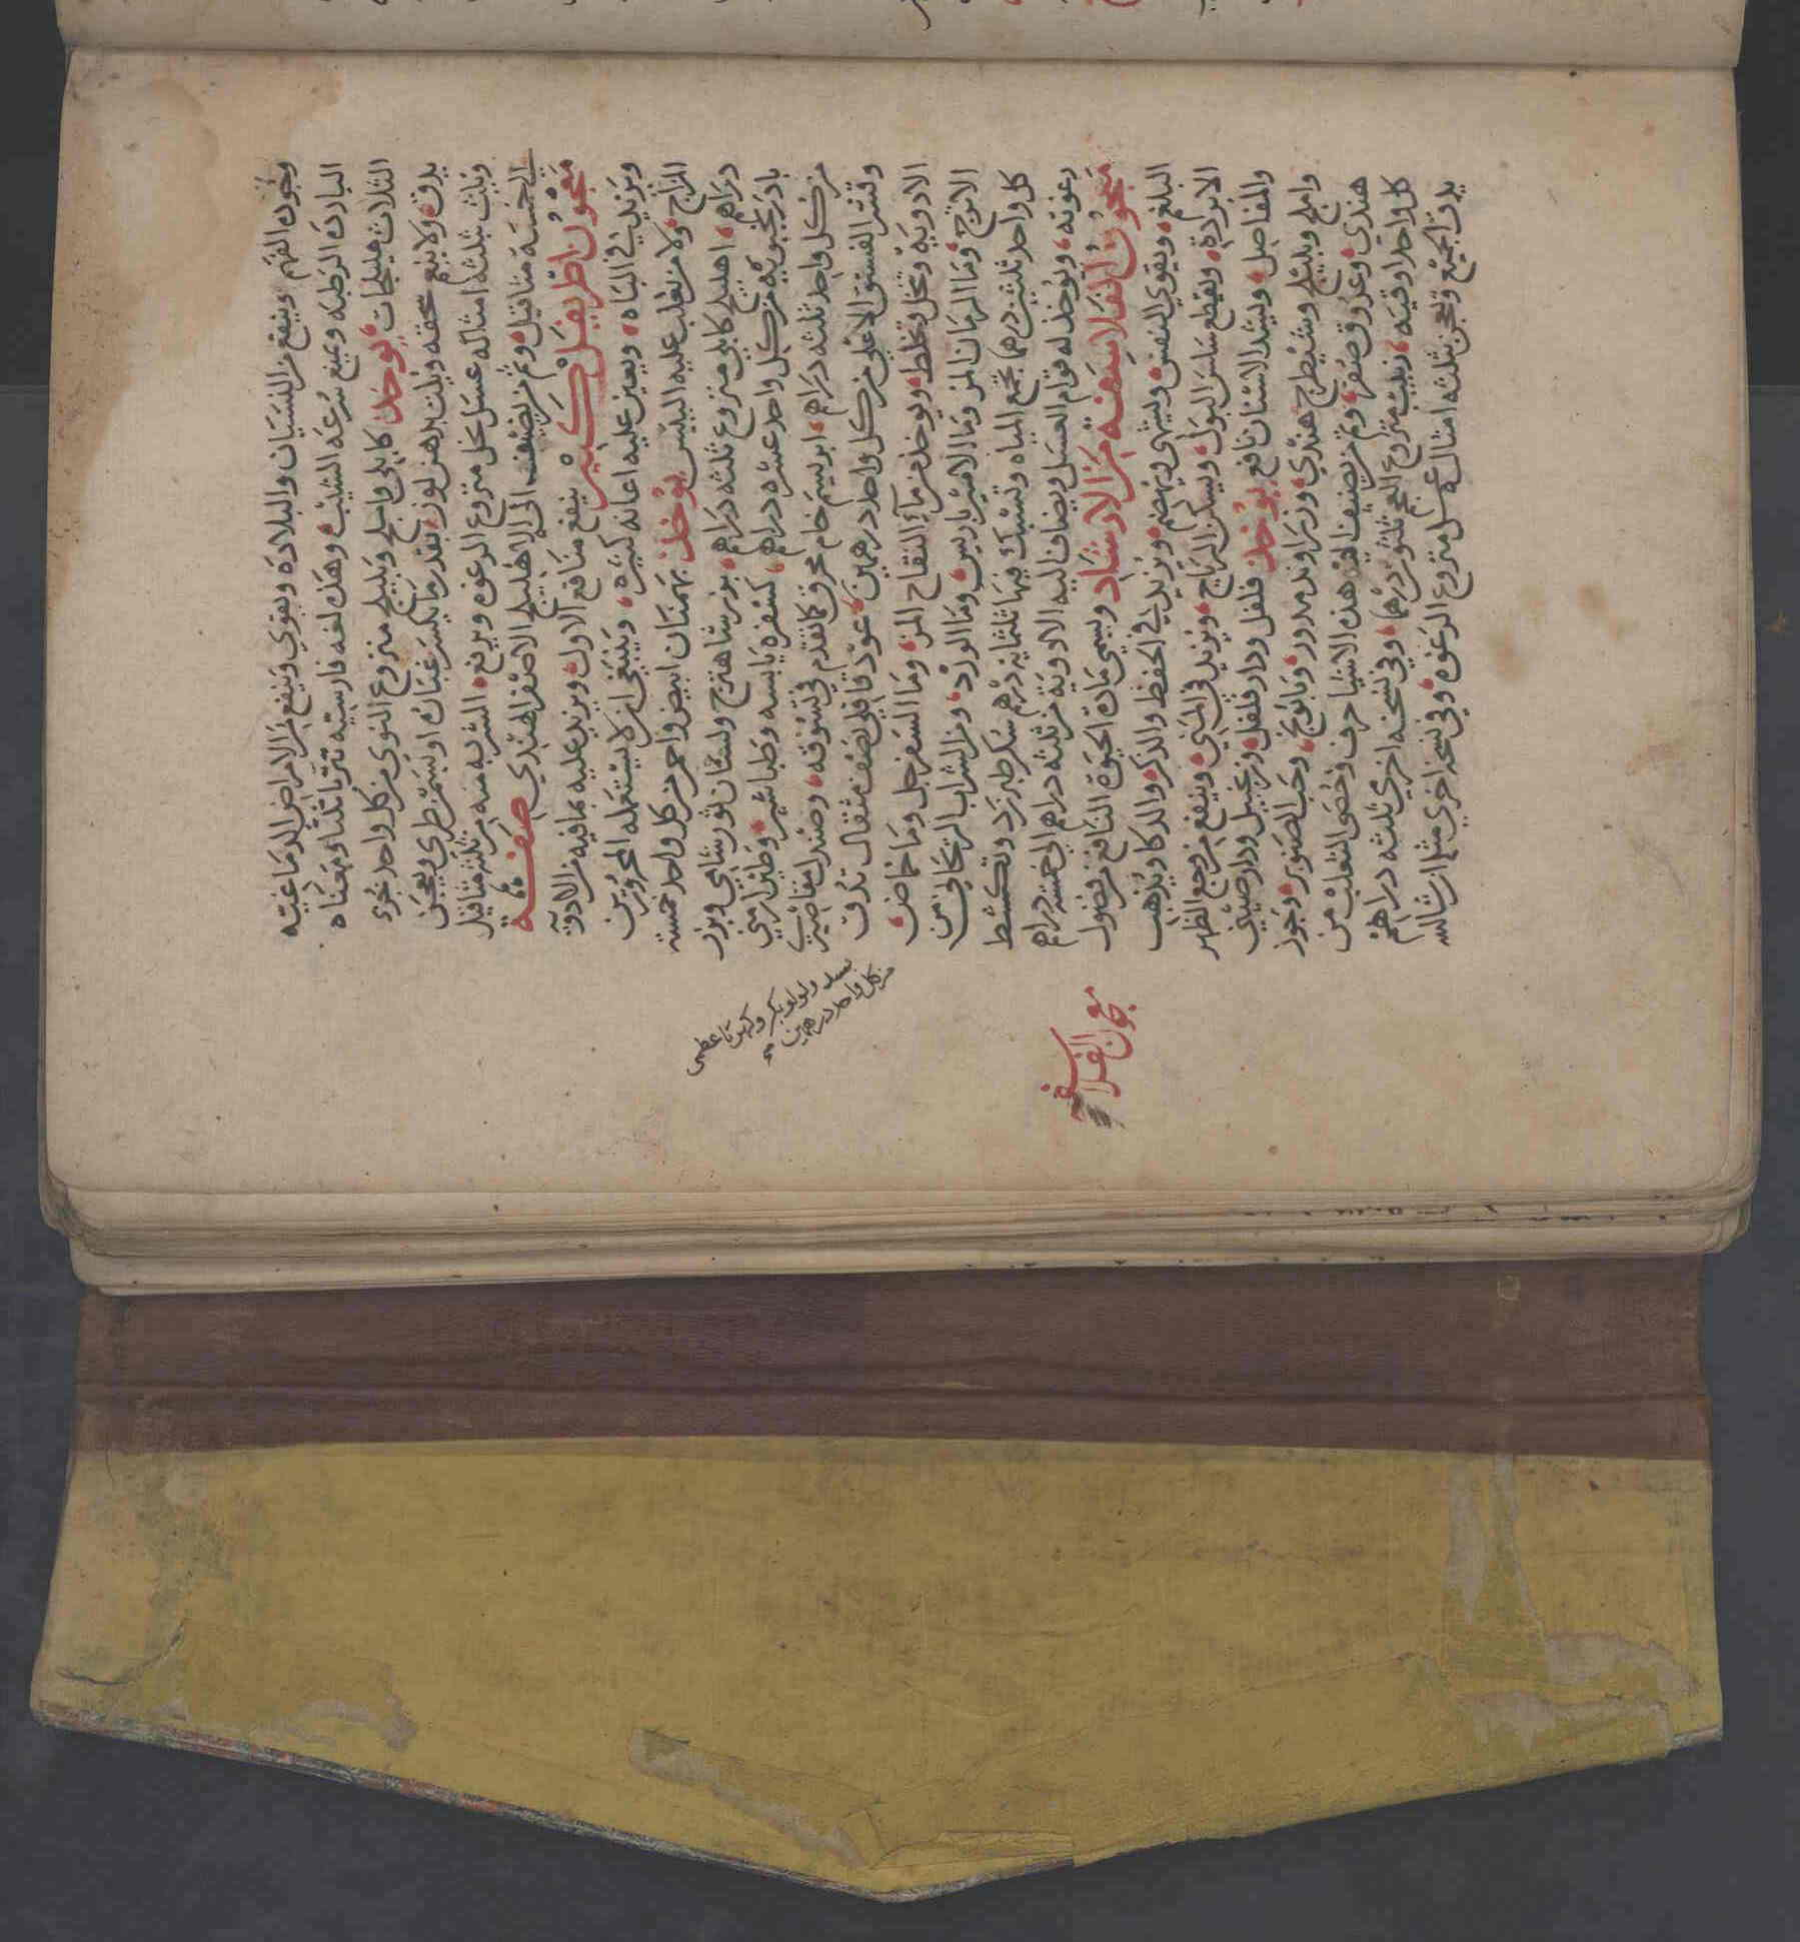 ويجود الفهم وينفع من النسيان والبلاده ويقوي وينفع من الامراض الدماغيه
البارده الرطبه ويمنع سرعه الشيب وهذه لغه فارسيه ومعناه
الثلاث هليلجات يوخذ كابلي واملج وبليلج منزوع النوي من كل واحد جزء
يدق ولا ينعم سحقه ويلت بدهن لوز بقدر ما يكسر غباره او بسمن طري ويعجن
بثلثه امثاله عسل نحل منزوع الرغوه ويرفع الشربه منه من ثلثه مثاقيل
الي خمسه مثاقيل وثم من يضيف الي الاهليلج الاصفر الهندي صفة
معجون اطريفل كبير ينفع منافع الاول ويزيد عليه بما فيه من الادويه
ويزيد في الباه ويعين عليه اعانه كبيره وينبغي ان لا يستعمله المحرورين
المزاج ولا من يغلب عليه اليبس يوخذ بهمنان ابيض واحمر من كل واحد خمسه
دراهم اهليلج كابلي منزوع ثلثه دراهم بزر شاهترج ولسان ثور شامي وبزر
بادرنجبويه من كل واحد عشره دراهم كسفره يابسه وطباشير وطين ارمني
من كل واحد ثلثه دراهم ابريسم خام محرق كما تقدم في وصندل مقاصيري
وقشر الفستق الاعلي من كل واحد درهمين عود قاقلي نصف مثقال تدق
الادويه وتنخل وتخلط ويوخذ من مآء التفاح المز وما السفرجل وما حماض
الاترج وما الرمان المز وما الامير باريس وما الورد ومن الشراب الريحاني من
كل واحد ثلثين درهما تجمع المياه وتسبك فيها ثلثمايه درهم سكر طبرزد وتكشط
رغوته ويوخذ له قوام العسل ويضاف اليه الادويه من ثلثه دراهم الي خمسه دراهم
معجون الفلاسفة من الارشاد ويسمي مادة الحيوة النافع من فضول
البلغم ويقوي النفس ويشهي ويهضم ويزيد في الحفظ والذكر والذكا ويذهب
الابردة ويقطع سلس البول ويسكن الرياح ويزيد في المني وينفع من وجع الظهر
والمفاصل ويشد الاسنان نافع يوخذ فلفل ودار فلفل وزنجبيل ودار صيني
واملج وبليلج وشيطرج هندي وزراوند مدور وبابونج وحب الصنوبر وجوز
هندي وعروق صفر وثم من يضيف الي هذه الاشيا حرف وخصي الثعلب من
كل واحد اوقيه زبيب منزوع العجم ثلثون درهما وفي نسخه اخري ثلثه دراهم
يدق الجميع ويعجن بثلثه امثاله عسل منزوع الرغوه وفي نسخه اخري
من كل واحد درهمين
معجون الفلاسفه